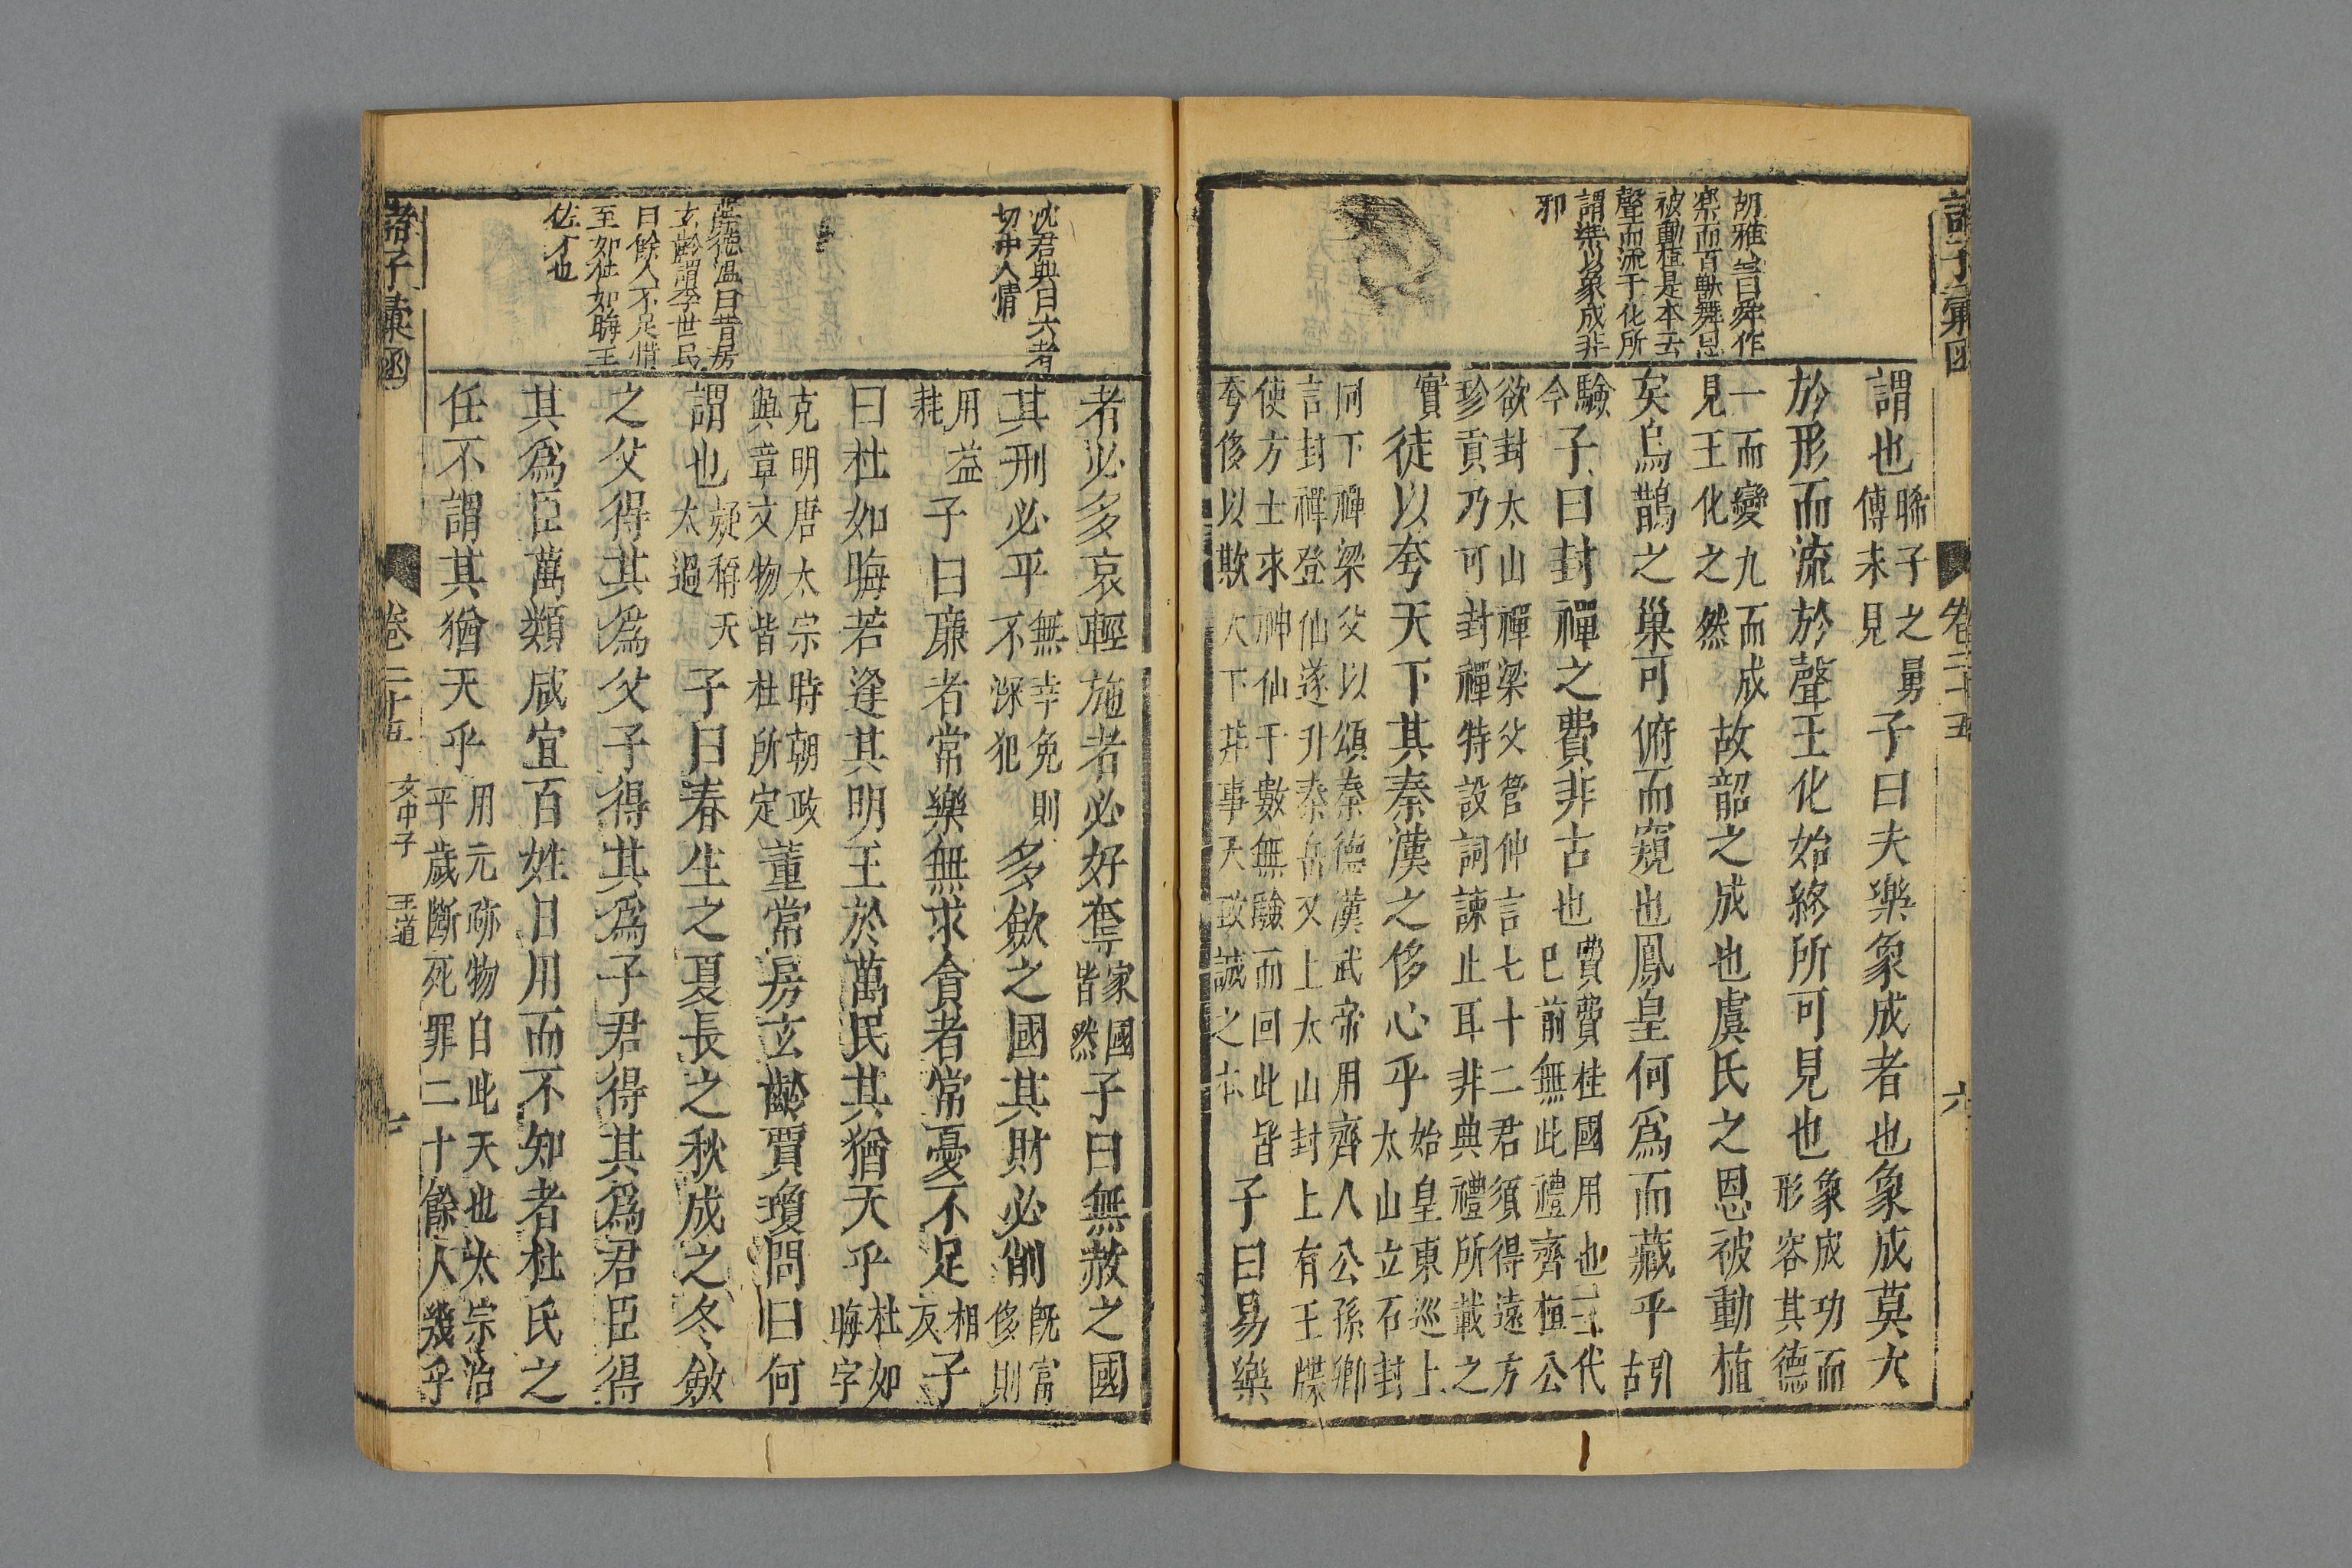 諸子彙函
卷二十五
六
胡雅言曰舜作
樂而百獸舞恩
被動植是本云
聲而流于化所
謂樂以象成非
邪
謂也聮子之舅傳未見子曰夫樂象成者也象成莫大
於形而流於聲王化始終所可見也象成功而形容其德
一而變九而成見王化之然故韶之成也虞氏之恩被動植
矣烏鵲之巢可俯而窺也鳳皇何爲而藏乎引古
驗今子曰封禪之費非古也費費桂國用也三代巳前無此禮齊桓公
欲封太山禪梁父管仲言七十二君須得遠方珍貢乃可封禪特設詞諫止耳非典禮所載之
實徒以夸天下其秦漢之侈心乎始皇東巡上太山立石封
祠下禪梁父以頌秦德漢武帝用齊人公孫卿言封禪登仙遂升泰岳又上太山封上有王牒
使方士求神仙于數無驗而回此皆夸侈以欺天下非事天致誠之本子曰易樂
沈君典曰六者
切中人情
德温曰昔房
玄齡謂李世民
曰餘人不足惜
至如杜如晦王
佐才也
者必多哀輕施者必好奪家國皆然子曰無赦之國
其刑必平無幸免則不深犯多斂之國其財必削旣富侈則
用益耗子曰廉者常樂無求貪者常憂不足相反子
曰杜如晦若逢其明王於萬民其猶天乎杜如晦字
克明唐太宗時朝政與章文物皆杜所定董常房玄齡賈瓊問曰何
謂也疑稱天太過子曰春生之夏長之秋成之冬斂
之父得其爲父子得其爲子君得其爲君臣得
其爲臣萬類咸宜百姓日用而不知者杜氏之
任不謂其猶天乎用元亦物自此天也太宗治平歲斷死罪二十餘人幾乎
諸子彙函
卷二十五
文中子
王道
七